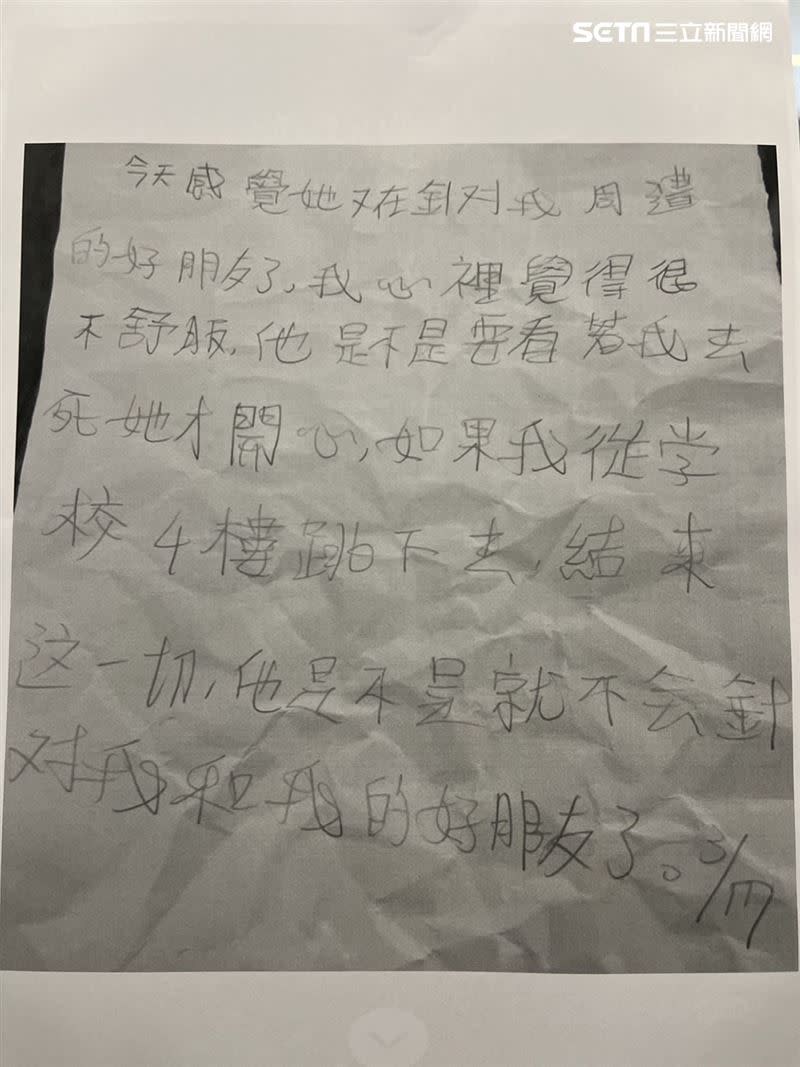 SETN三立新聞網
今天感覺她又在針对我周遭
的好朋友了,我心裡覺得很
不舒服,他是不是要看著我去
死她才開心,如果我從学
校4樓跳下去,結束
这一切,他是不是就不会針
对我和我的好朋友了。3/